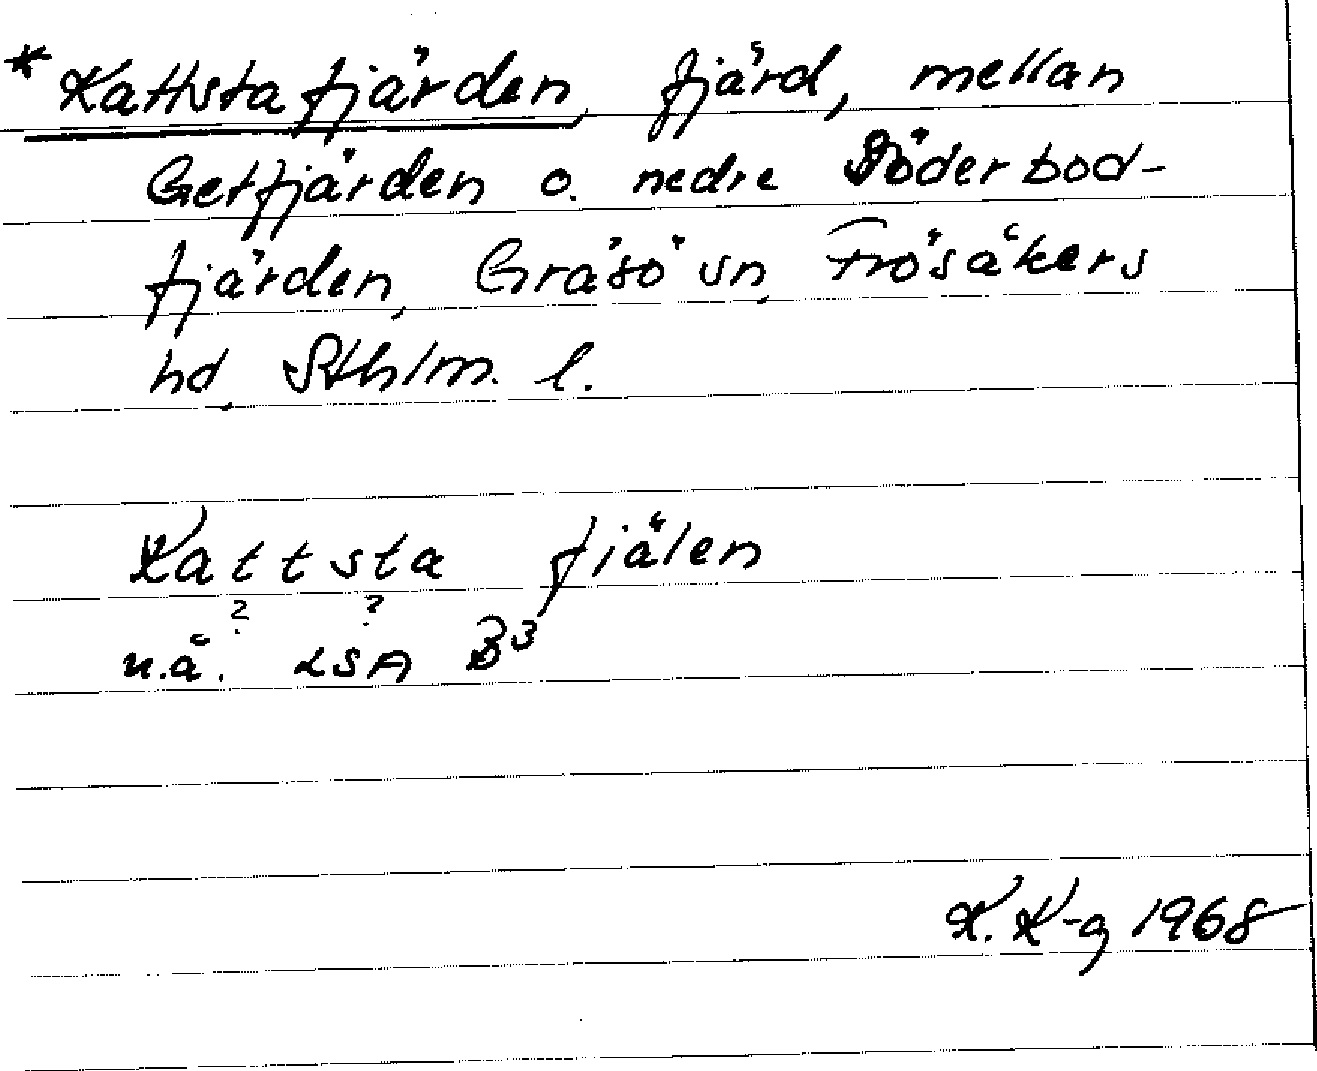 *Kattstafjärden, fjärd, mellan
Getfjärden o. nedre Söderbod-
fjärden, Gräsö sn, Frösåkers
hd, Sthlm. l.
Kattsta fjälen
? ?
u.å. LSA B3
K. K-g 1968